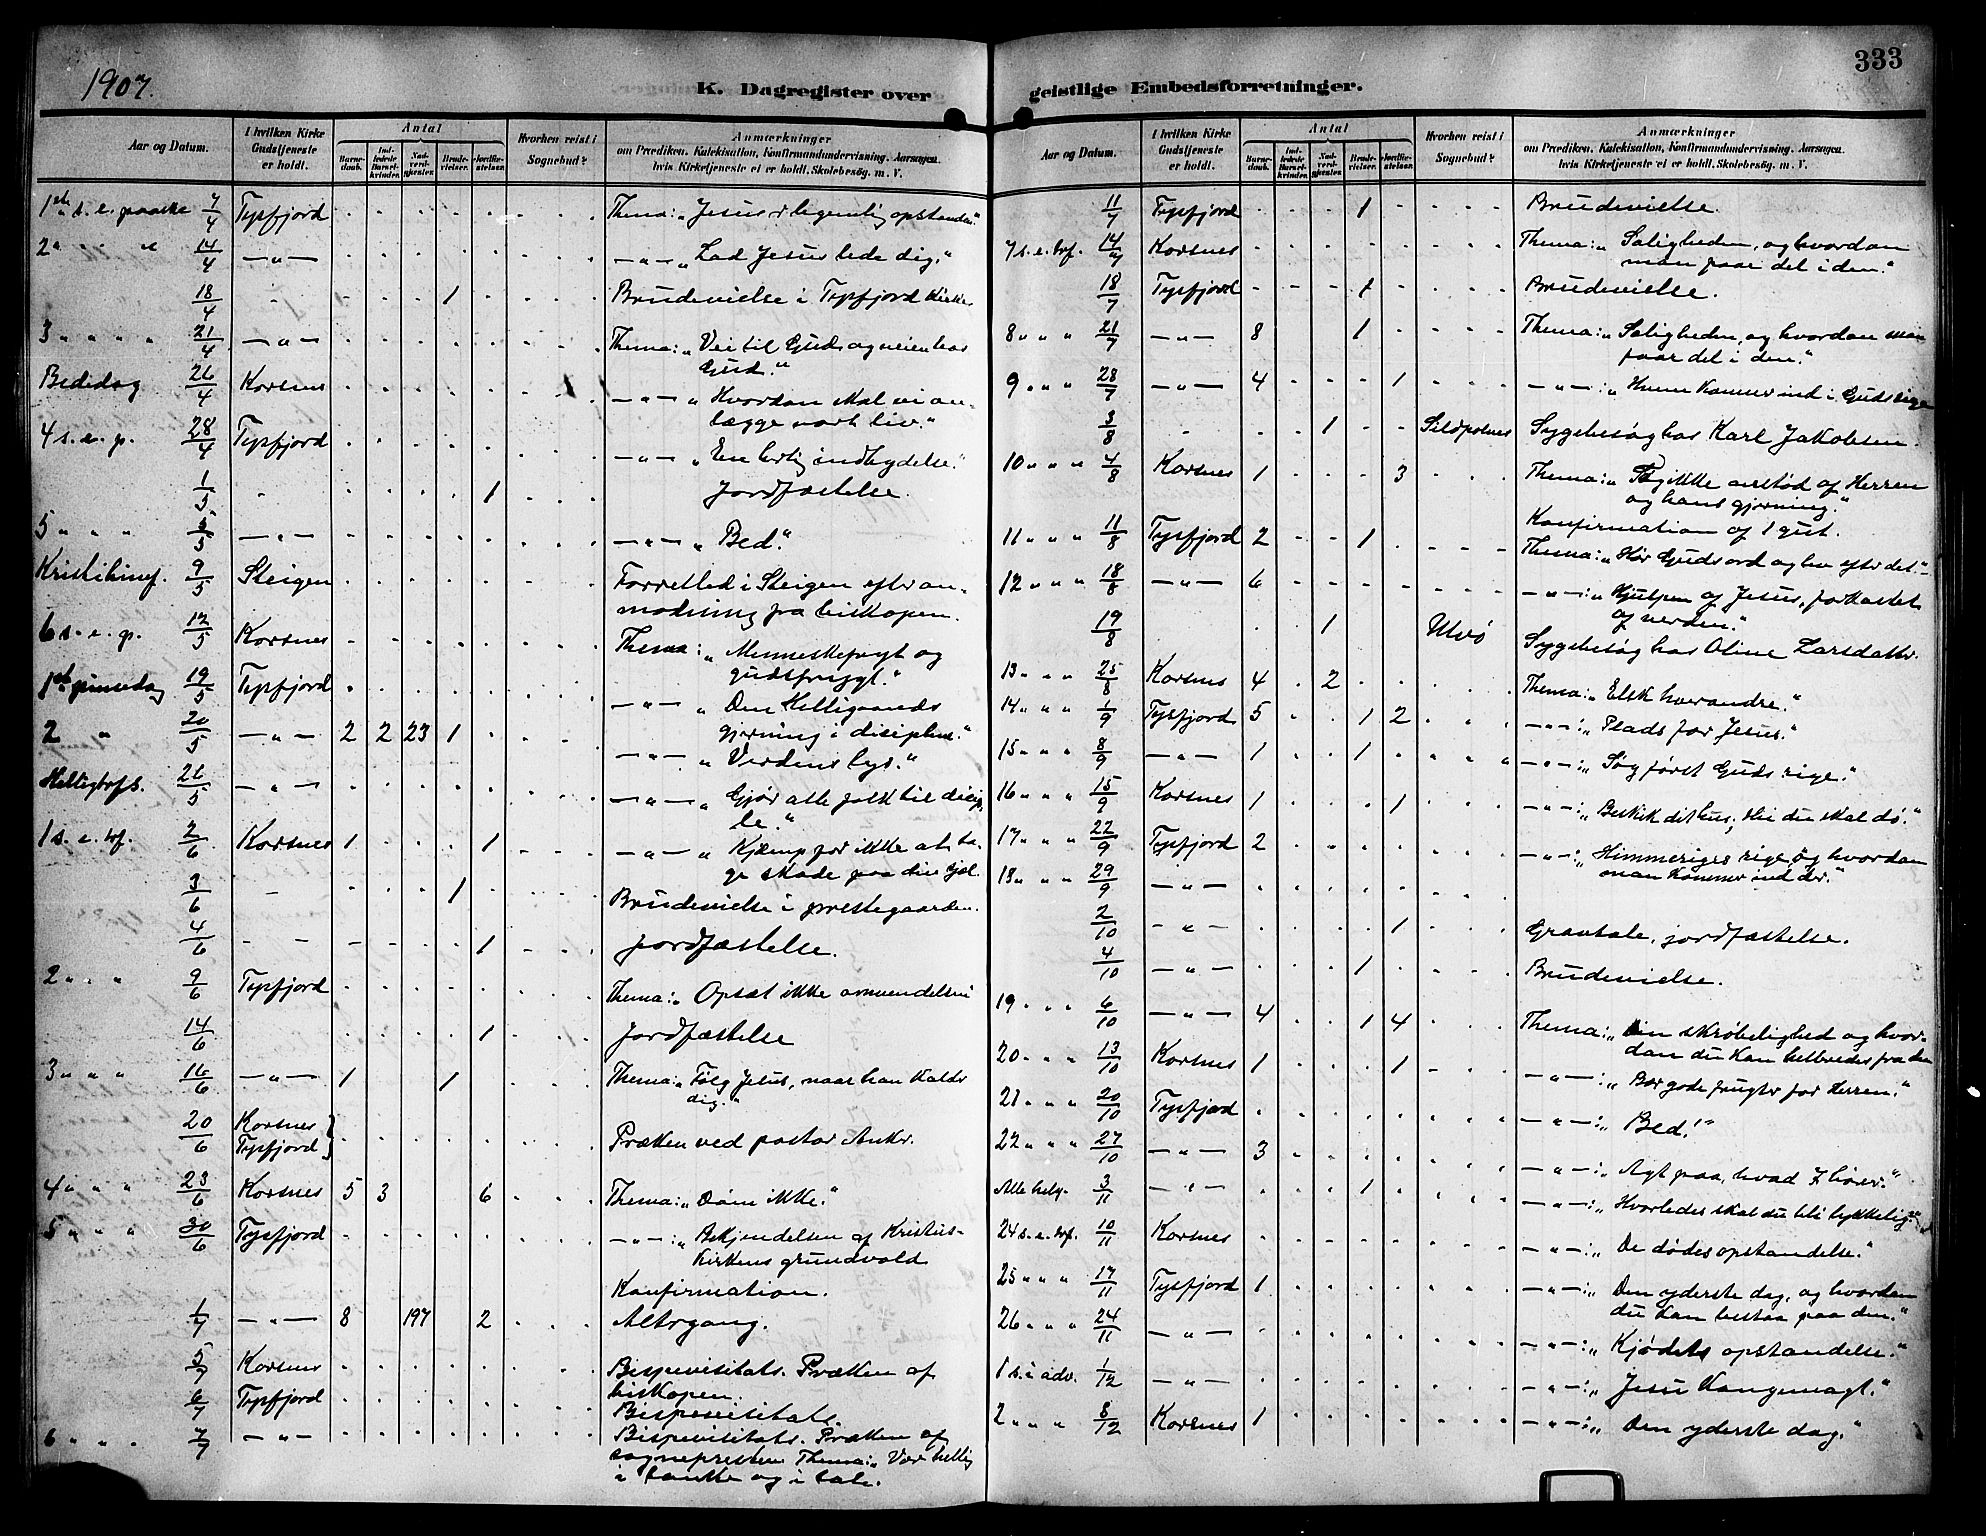 1907.
K. Dagregister over
Aar og Datum.
I hvilken Kirke Gudstjeneste er holdt.
Antal
Barnedaab.
Indledede Barselkvinder.
Nadverdgjester.
Brudevielser.
Jordfæstelser.
Hvorhen reist i Sognebud?
Anmærkninger
om Prædiken, Katekisation, Konfirmandundervisning, Aarsagen,
hvis Kirketjeneste ei er holdt, Skolebesøg m. V.
1ste s. e. paaske 7/4 Tysfjord Thema: „Jesus er legemlig opstanden“
2 " " " 14/4 —"— —"— „Lad Jesus lede dig.“
18/4 1 Brudevielse i Tysfjord kirke.
3 " " " 21/4 —"— Thema: „Vei til Gud og veien hos
Gud.“
Bededag 26/4 Korsnes —"— „Hvordan skal vi an-
lægge vort liv.“
4 s. e. p. 28/4 Tysfjord —"— „En herlig indbydelse.“
1/5 1 Jordfæstelse.
5 " " " 5/5 —"— —"— „Bed.“
Kristi himf. 9/5 Steigen Forretted i Steigen efter an-
modning fra biskopen.
6 s. e. p. 12/5 Korsnes Thema: „Menneskefrygt og
gudsfrygt.“
1ste pinsedag 19/5 Tysfjord —"— „Den Helligaands
gjerning i disciplene.“
2 " 20/5 —"— 2 2 23 1 —"— „Verdens lys.“
Helligtrefs. 26/5 —"— —"— „Gjør alle folk til disip-
le.“
1 s. e. tref. 2/6 Korsnes 1 1 —"— „Kjæmp for ikke at ta-
ge skade paa din sjæl.
3/6 1 Brudevielse i prestegaarden.
4/6 1 Jordfæstelse.
2 " " 9/6 Tysfjord Thema: „Opsæt ikke omvendelsen
14/6 1 Jordfæstelse
3 " " " 16/6 —"— 1 1 Thema: „Følg Jesus, naar han kalder
dig.“
20/6 Korsnes
Tysfjord Præken ved pastor Anker.
4 " " " 23/6 Korsnes 5 3 6 Thema: „Døm ikke.“
5 " " " 30/6 Tysfjord —"—: „Bekjendelsen af Kristus-
kirkens grundvold
Konfirmation.
1/7 —"— 8 197 2 Altergang.
5/7 Korsnes Bispevisitats. Præken af
biskopen.
6/7 Tysfjord Bispevisitats.
6 " " " 7/7 —"— Bispevisitats. Præken af
sognepresten Thema: „Vær hellig
i tanke og i tale.
333
geistlige Embedsforretninger.
Aar og Datum.
I hvilken Kirke Gudstjeneste er holdt.
Antal
Barnedaab.
Indledede Barselkvinder.
Nadverdgjester.
Brudevielser.
Jordfæstelser.
Hvorhen reist i Sognebud?
Anmærkninger
om Prædiken, Katekisation, Konfirmandundervisning, Aarsagen,
hvis Kirketjeneste ei er holdt, Skolebesøg m. V.
11/7 Tysfjord 1 Brudevielse.
7 s. e. tref. 14/7 Korsnes Thema: „Saligheden, og hvordan
man faar del i den.“
18/7 Tysfjord 1 Brudevielse.
8 " " 21/7 —"— 8 1 Thema: „Saligheden, og hvordan man
faar del i den.“
9 " " 28/7 —"— 4 1 —"—: „Hvem kommer ind i Guds rige
3/8 1 Sygebesøg hos Karl Jakobsen.
10 " " " 4/8 Korsnes 1 3 Thema: „Tag ikke anstød af Herren
og hans gjerning.“
Konfirmation af 1 gut.
11 " " " 11/8 Tysfjord 2 1 Thema: „Hør Guds ord og lev efter det.“
12 " " " 18/8 —"— 6 —"—: „Hjulpen af Jesus, forkastet
af verden.“
19/8 1 Ulvø Sygebesøg hos Oline Larsdatter.
13 " " 25/8 Korsnes 4 2 Thema: „Elsk hverandre.“
14 " " 1/9 Tysfjord 5 1 2 —"—: „Plads for Jesus.“
15 " " 8/9 —"— 1 1 —"—: „Søg først Guds rige.“
16 " " " 15/9 Korsnes 1 1 —"—: „Beskik dit hus, thi du skal dø.“
17 " " 22/9 Tysfjord 2 —"—: „Himmeriges rige, og hvordan
man kommer ind der.“
18 " " 29/9 —"—
2/10 —"— 1 Gravtale, jordfæstelse.
4/10 —"— 1 Brudevielse.
19 " " 6/10 —"— 4 1 4 Thema: „Din skrøbelighed og hvor-
dan du kan helbredes fra den
20 " " 13/10 Korsnes 1 1 —"—: „Bær gode frugter for Herren.“
21 " " " 20/10 Tysfjord —"—: „Bed!“
22 " " " 27/10 —"— 3 —"—: „Agt paa, hvad I hører.“
Alle helg. 3/11 —"— 1 —"—: „Hvorledes skal du bli lykkelig.“
24 s. e. tref. 10/11 Korsnes —"—: „De dødes opstandelse.“
25 " " 17/11 Tysfjord 1 —"—: „Den yderste dag, og hvordan
du kan bestaa paa den.“
26 " " " 24/11 —"— —"—: „Kjødets opstandelse.“
1 s. i adv. 1/12 —"— —"—: „Jesu kongemagt.“
2 " " " 8/12 Korsnes 1 —"—: „Den yderste dag.“